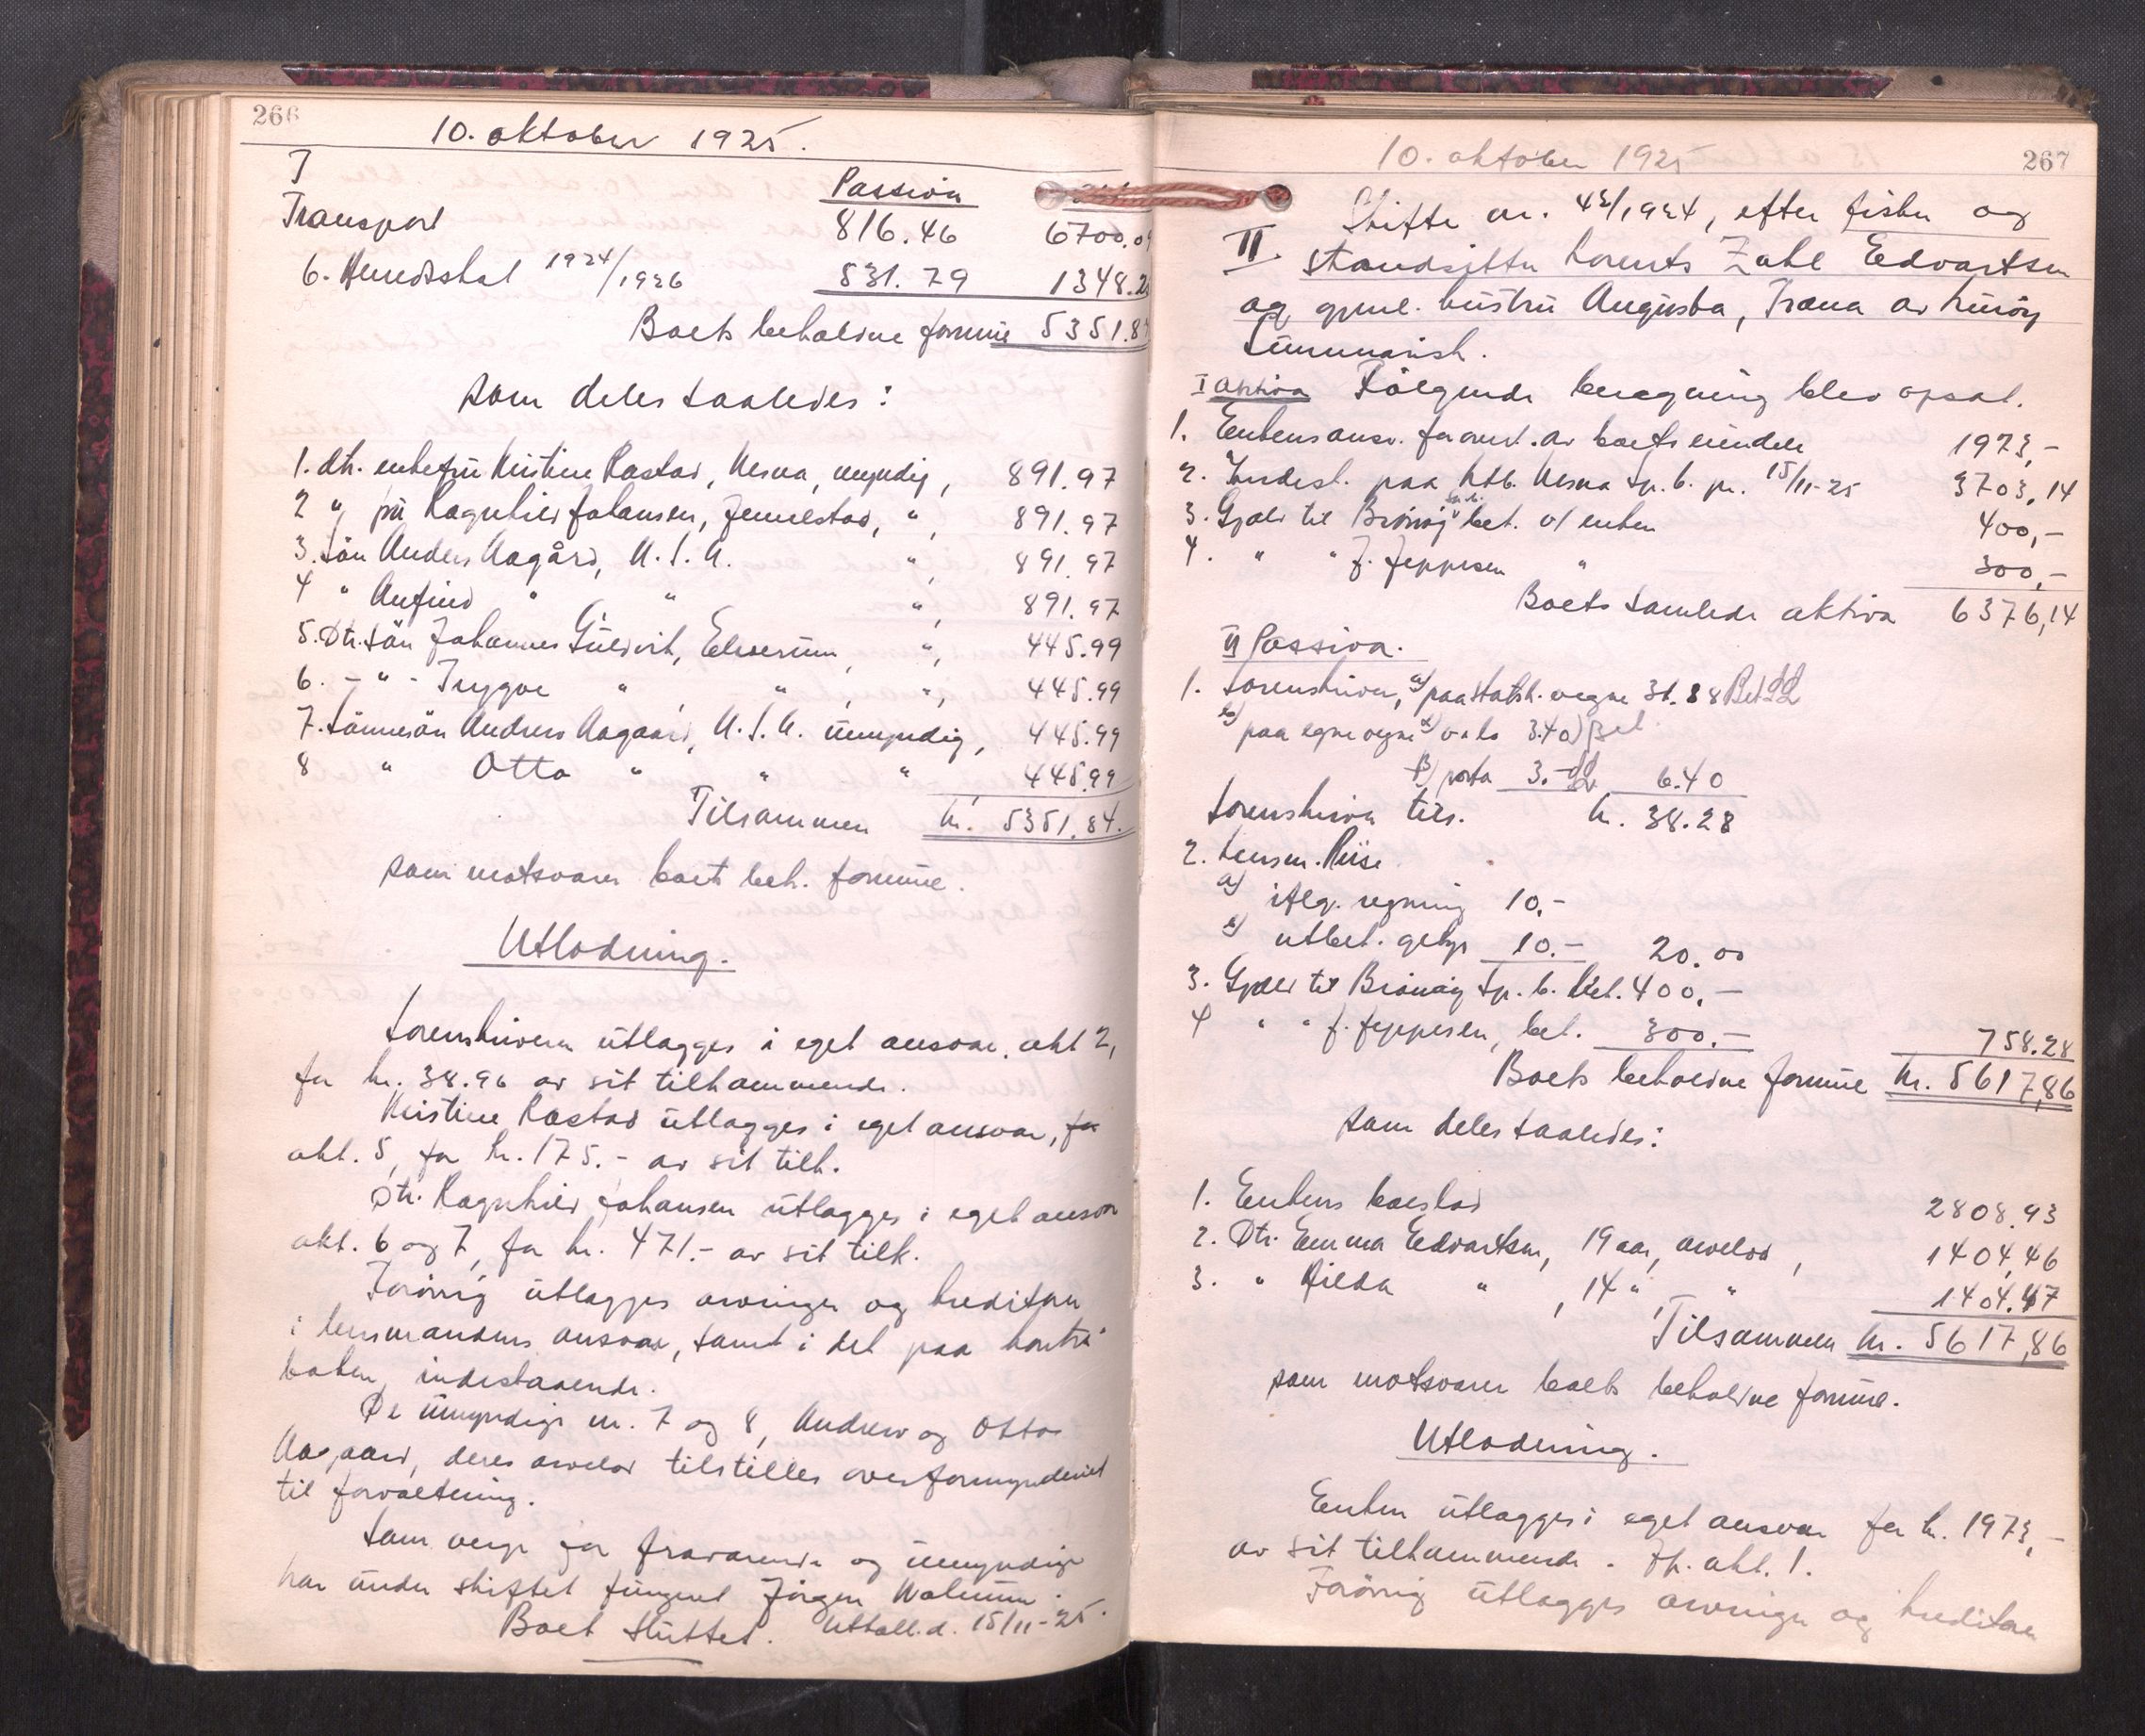 266
10. oktober 1925.
I
Passiva
Transport 816.46 6700.0
6. Herredsskat 1924/1926 531.79 1348.2
Boets beholdne formue 5351.8
som deles saaledes:
1. dtr. enkefru Kristine Rastad, Nesna, myndig, 891.97
2 " fru Ragnhild Johansen, Jennestad, ", 891.97
3. Søn Anders Aagård, U.S.A. ", 891.97
4 " Anfind " " ", 891.97
5. Dtr. søn Johannes G. Guldvik, Elverum, ", 445.99
6. - " - Trygve " " ", 445.99
7. Sønnesøn Andrew Aagaard, U.S.A. umyndig, 445.99
8 " Otto " " " 445.99
Tilsammen kr. 5351.84.
som motsvarer boets beh. formue.
Utlodning.
Sorenskriveren utlægges i eget ansvar, akt 2,
for kr. 38.96 av sit tilkommende.
Kristine Rastad utlægges i eget ansvar, for
akt. 5, for kr. 175.- av sit tilk.
Dtr. Ragnhild Johansen utlægges i eget ansvar
akt. 6 og 7, for kr. 471.- av sit tilk.
Forøvrig utlægges arvinger og kreditorer
i lensmandens ansvar, samt i det paa kontra
boken indestaaende.
De umyndige nr. 7 og 8, Andrew og Otto
Aagaard, deres arvelod tilstilles overformynderiet
til forvaltning.
Som verge for fraværende og umyndige
har under skiftet fungert Jørgen Walnum.
Boet sluttet. Utbetalt d. 15/11-25.
10. oktober 1925
267
Skifte nr. 42/1924, efter fisker og
II. strandsitter Lorents Zahl Edvartsen
og gjenl. hustru Augusta, Træna av Lurøy
Summarisk.
I aktiva Følgende beregning blev opsat.
1. Enkens ansv. for overt. av boets eiendele 1973,-
2. Indest. paa ktb. Nesna sp.b. pr. 15/11-25 3703,14
3. Gjæld til Brønøy sp.b. bet. v/ enken 400,-
4. " " J. Jeppesen " 300,-
Boets samlede aktiva 6376,14
II Passiva.
1. Sorenskriver, a) paa statsk. vegne 31.88 Bet
b) paa egne vegne α) 3.40) Bet
β) porto 3.- 6.40
Sorenskriver tils. kr. 38.28
2. Lensm. Riise
a) iflg. regning 10.-
b) utbet. gebyr 10.- 20.00
3. Gjæld til Brønøy Sp.b. bet. 400.-
4 " " J. Jeppesen, bet. 300.- 758.28
Boets beholdne formue kr. 5617,86
som deles saaledes:
1. Enkens boeslod 2808.93
2. Dtr. Emma Edvartsen, 19 aar, arvelod, 1404,46
3. " Hilda " , 14 " " 1404.47
Tilsammen kr. 5617,86
som motsvarer boets beholdne formue.
Utlodning.
Enken utlægges i eget ansvar for kr. 1973,-
av sit tilkommende. Jfr. akt. 1.
Forøvrig utlægges arvinger og kreditorer